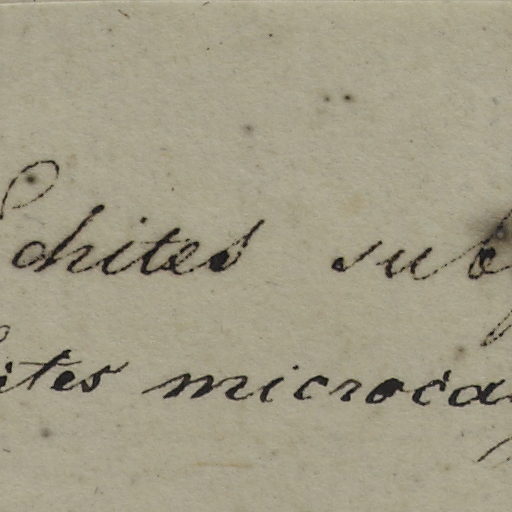 Echites sub
ites microca